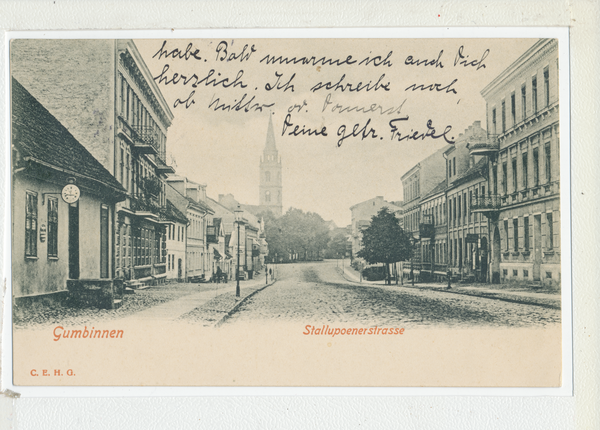 habe. Bald umarme ich auch Dich
herzlich. Ich schreibe noch,
ob Mittw. od. Donnerst.
Deine getr. Friedel.
Gumbinnen
Stallupoenerstrasse
C. E. H. G.